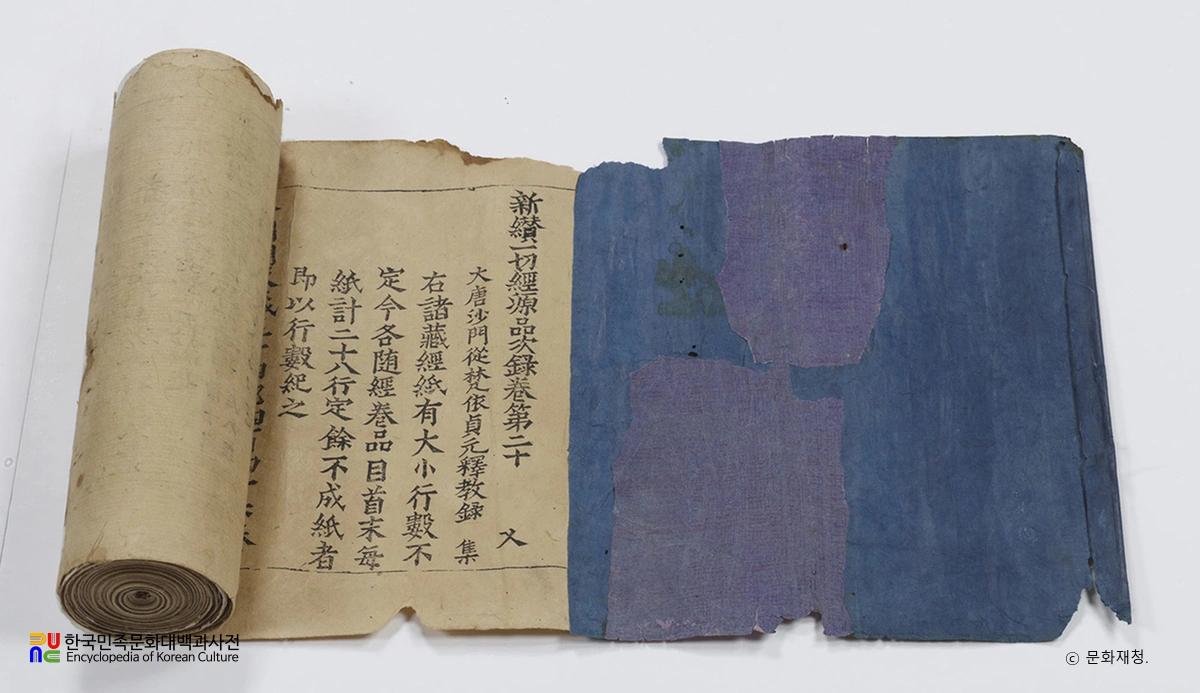 新纉一切經源品次録卷第二十 乂
大唐沙門從梵依貞元釋教録 集
右諸藏經紙有大小行數不
定今各随經卷品目首末每
紙計二十八行定餘不成紙者
即以行數紀之
한국민족문화대백과사전
Encyclopedia of Korean Culture
ⓒ 문화재청.